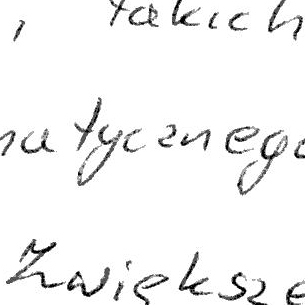 , takich
natycznego
Zwiększe